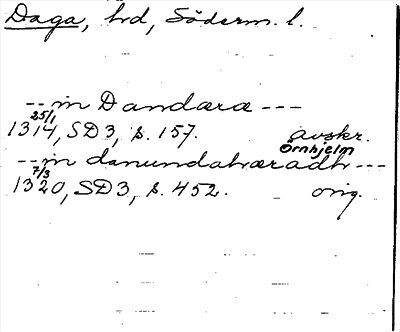 Daga, hd, Söderm. l.
-- in Dandæræ ---
25/1
1314, SD3, s. 157. avskr.
Örnhjelm
-- in danundahæradh ---
7/3
1320, SD3, s. 452. orig.